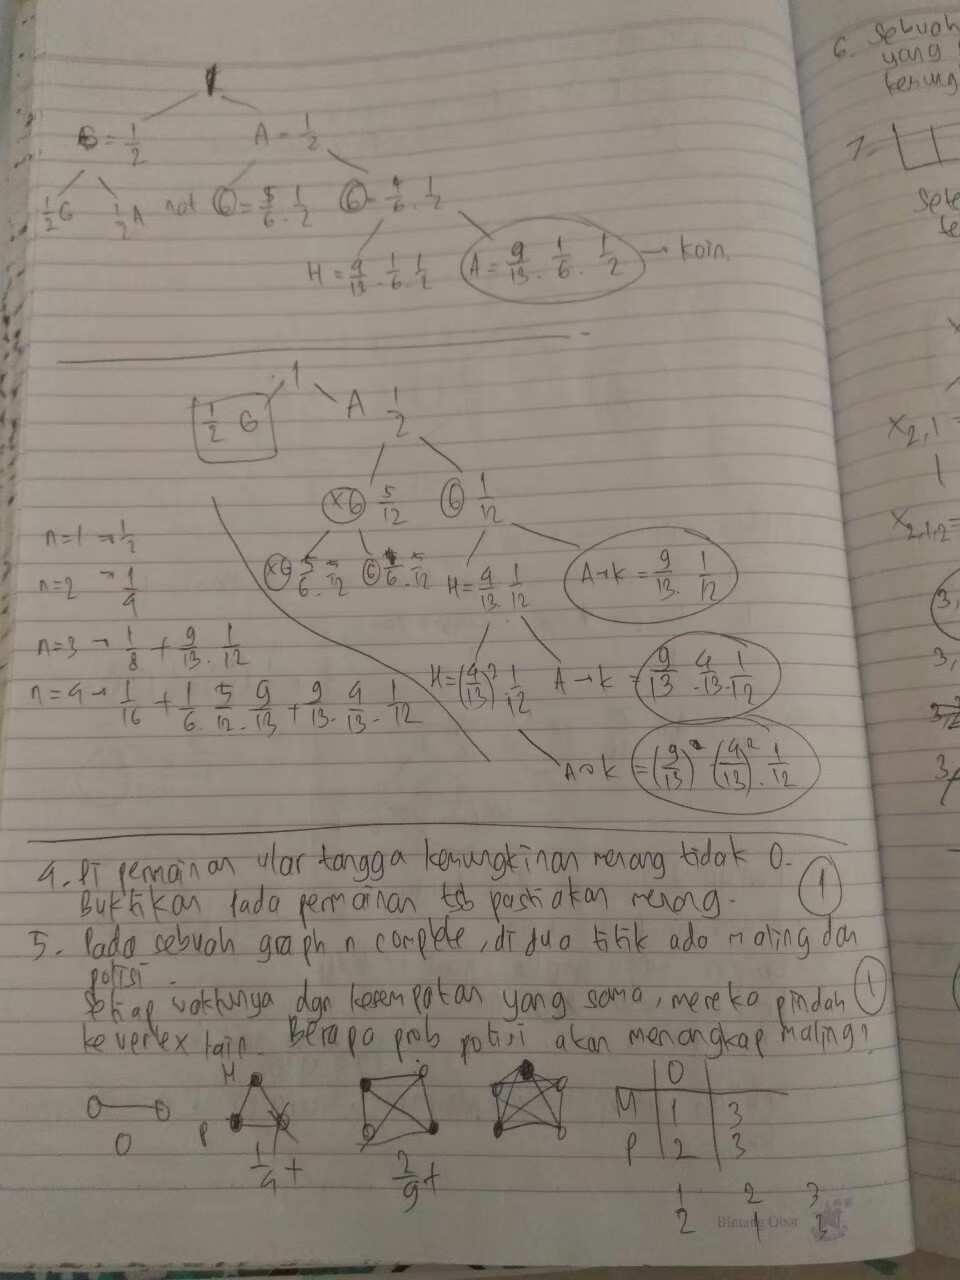 G = 1/2 A = 1/2
1/2 G 1/2 A not 6 = 5/6 . 1/2 6 = 1/6 . 1/2
H = 4/13 . 1/6 . 1/2 A = 9/13 . 1/6 . 1/2 → koin.
1
1/2 G A 1/2
x6 5/12 6 1/12
n=1 → 1/2
x6 5/6 . 5/12 6 1/6 . 5/12 H = 4/13 . 1/12 A→k = 9/13 . 1/12
n=2 → 1/4
n=3 → 1/8 + 9/13 . 1/12
H = (4/13)² . 1/12 A→k = 9/13 . 4/13 . 1/12
n=4 → 1/16 + 1/6 . 5/12 . 9/13 + 9/13 . 4/13 . 1/12
A→k = (9/13) (4/13)² . 1/12
4. Di permainan ular tangga kemungkinan menang tidak 0.
Buktikan pada permainan tsb pasti akan menang. 1
5. Pada sebuah graph n complete, di dua titik ada maling dan
polisi.
Setiap waktunya dgn kesempatan yang sama, mereka pindah 1
ke vertex lain. Berapa prob polisi akan menangkap maling?
M
P
0
1/4 +
2/9 +
0
M 1 3
P 2 3
1 2 3
2 1
Bintang Obor
6. Sebuah
yang
7=
X2,1
1
X2,1,2=
3,
3,